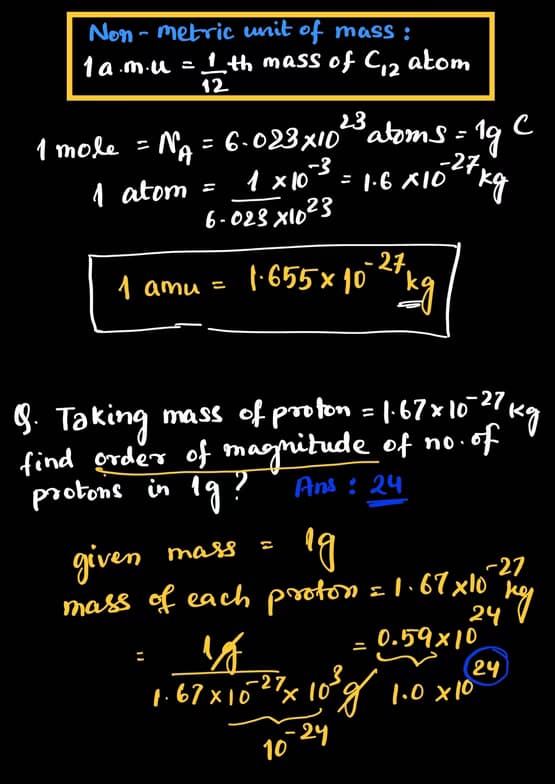 Non-metric unit of mass :
1 a.m.u = 1/12 th mass of C₁₂ atom
1 mole = N_A = 6.023×10²³ atoms = 1g C
1 atom = 1×10⁻³/6.023×10²³ = 1.6×10⁻²⁷ kg
1 amu = 1.655×10⁻²⁷ kg
Q. Taking mass of proton = 1.67×10⁻²⁷ kg
find order of magnitude of no. of
protons in 1g? Ans : 24
given mass = 1g
mass of each proton = 1.67×10⁻²⁷ kg
= 1g/1.67×10⁻²⁷×10³g = 0.59×10²⁴
10⁻²⁴
1.0×10²⁴